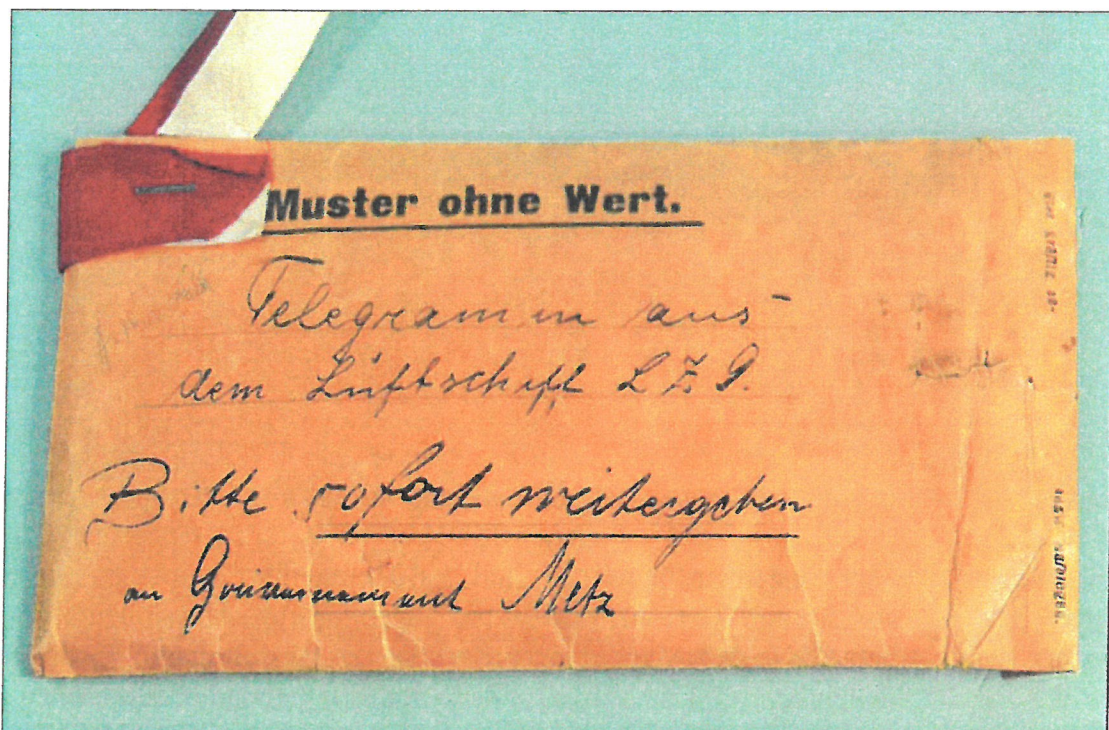 Muster ohne Wert.
Telegramm aus
dem Luftschiff L Z 9.
Bitte sofort weitergeben
an Gouvernement Metz